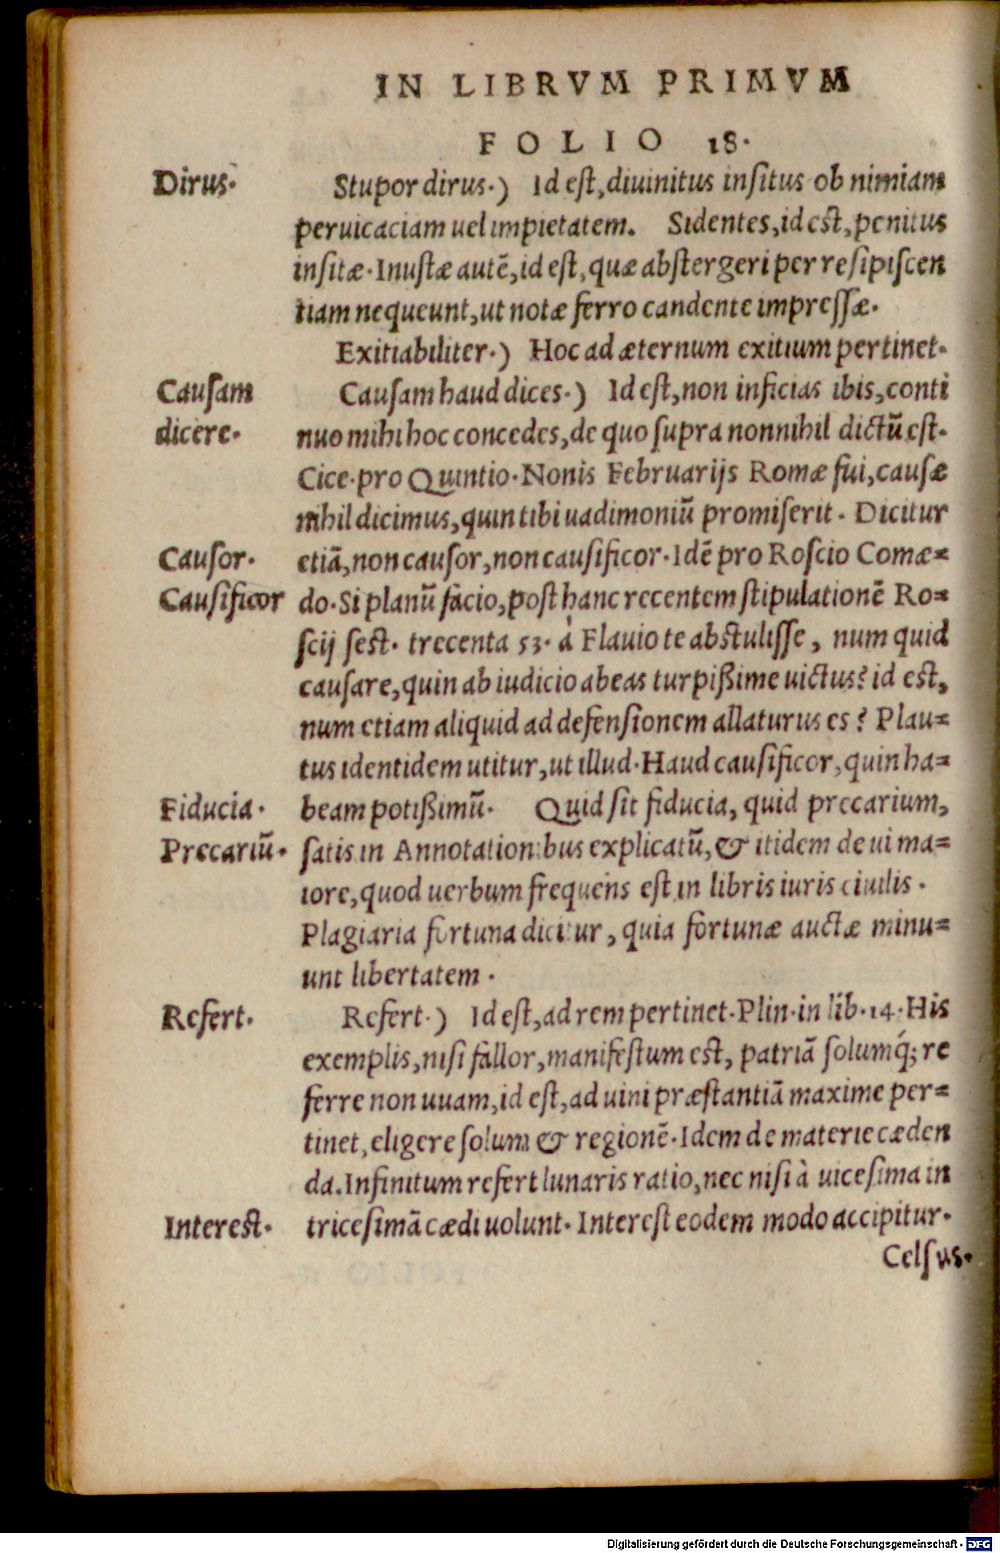 IN LIBRVM PRIMVM
FOLIO 18.
Dirus. Stupor dirus.) Id est, diuinitus insitus ob nimiam
peruicaciam uel impietatem. Sidentes, id est, penitus
insitæ. Inustæ autẽ, id est, quæ abstergeri per resipiscen
tiam nequeunt, ut notæ ferro candente impressæ.
Exitiabiliter.) Hoc ad æternum exitium pertinet.
Causam Causam haud dices.) Id est, non inficias ibis, conti
dicere. nuo mihi hoc concedes, de quo supra nonnihil dictũ est.
Cice. pro Quintio. Nonis Februarijs Romæ fui, causæ
nihil dicimus, quin tibi uadimoniũ promiserit. Dicitur
Causor. etiã, non causor, non causificor. Idẽ pro Roscio Comæ=
Causificor do. Si planũ facio, post hanc recentem stipulationẽ Ro=
scij sest. trecenta 53. à Flauio te abstulisse, num quid
causare, quin ab iudicio abeas turpißime uictus? id est,
num etiam aliquid ad defensionem allaturus es? Plau=
tus identidem utitur, ut illud. Haud causificor, quin ha=
Fiducia. beam potißimũ. Quid sit fiducia, quid precarium,
Precariũ. satis in Annotationibus explicatũ, & itidem de ui ma=
iore, quod uerbum frequens est in libris iuris ciuilis.
Plagiaria fortuna dicitur, quia fortunæ auctæ minu=
unt libertatem.
Refert. Refert.) Id est, ad rem pertinet. Plin. in lib. 14. His
exemplis, nisi fallor, manifestum est, patriã solumq́; re
ferre non uuam, id est, ad uini præstantiã maxime per=
tinet, eligere solum & regionẽ. Idem de materie cæden
da. Infinitum refert lunaris ratio, nec nisi à uicesima in
Interest. tricesimã cædi uolunt. Interest eodem modo accipitur.
Celsus.
Digitalisierung gefördert durch die Deutsche Forschungsgemeinschaft - DFG